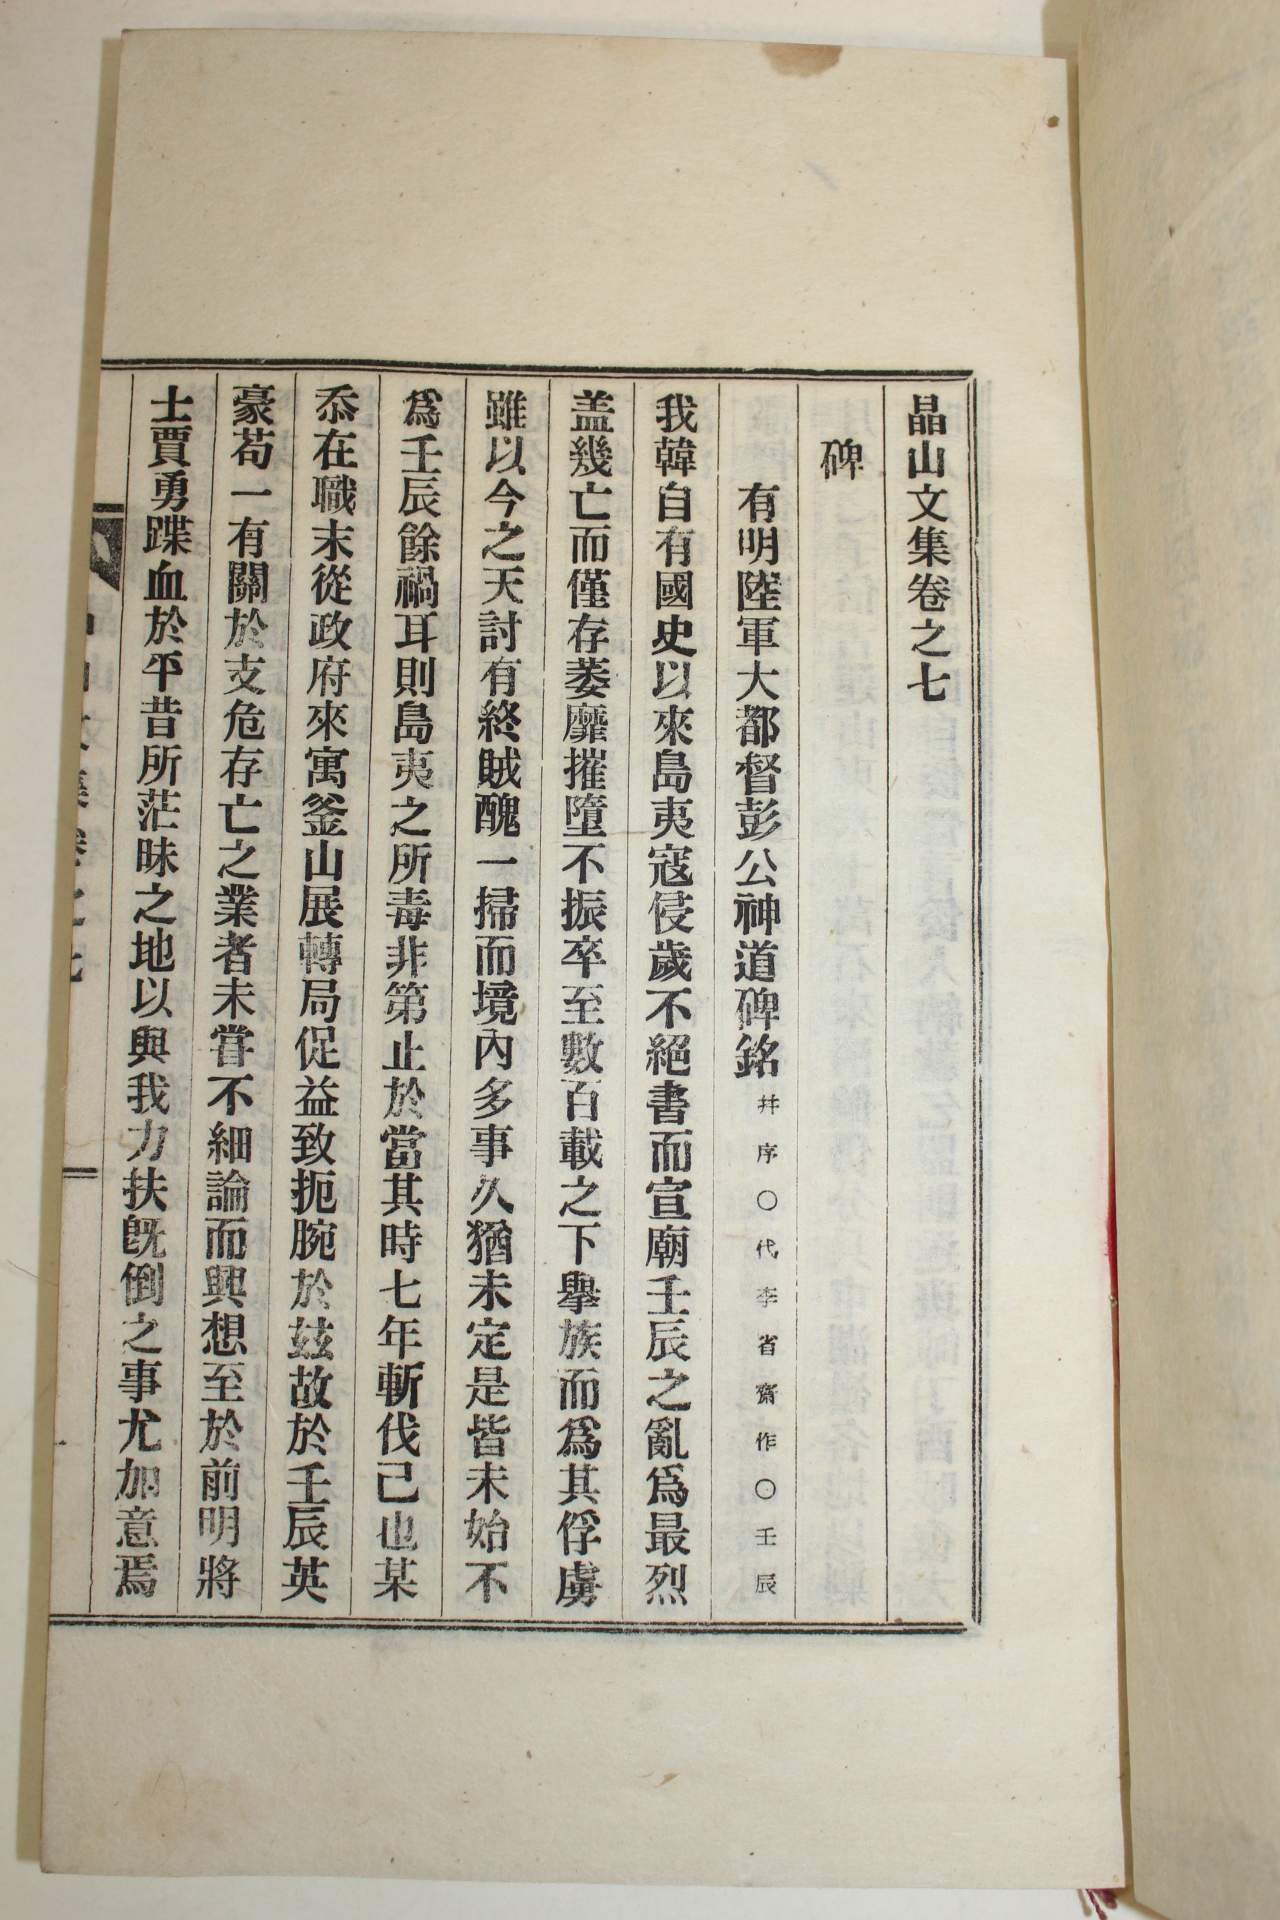 晶山文集卷之七
碑
有明陸軍大都督彭公神道碑銘 幷序○代李省齋作○壬辰
我韓自有國史以來島夷寇侵歲不絕書而宣廟壬辰之亂爲最烈
盖幾亡而僅存萎靡摧墮不振卒至數百載之下擧族而爲其俘虜
雖以今之天討有終賊醜一掃而境內多事久猶未定是皆未始不
爲壬辰餘禍耳則島夷之所毒非第止於當其時七年斬伐己也某
忝在職末從政府來寓釜山展轉局促益致扼腕於玆故於壬辰英
豪苟一有關於支危存亡之業者未嘗不細論而興想至於前明將
士賈勇蹀血於平昔所茫昧之地以與我力扶旣倒之事尤加意焉
晶山文集卷之七